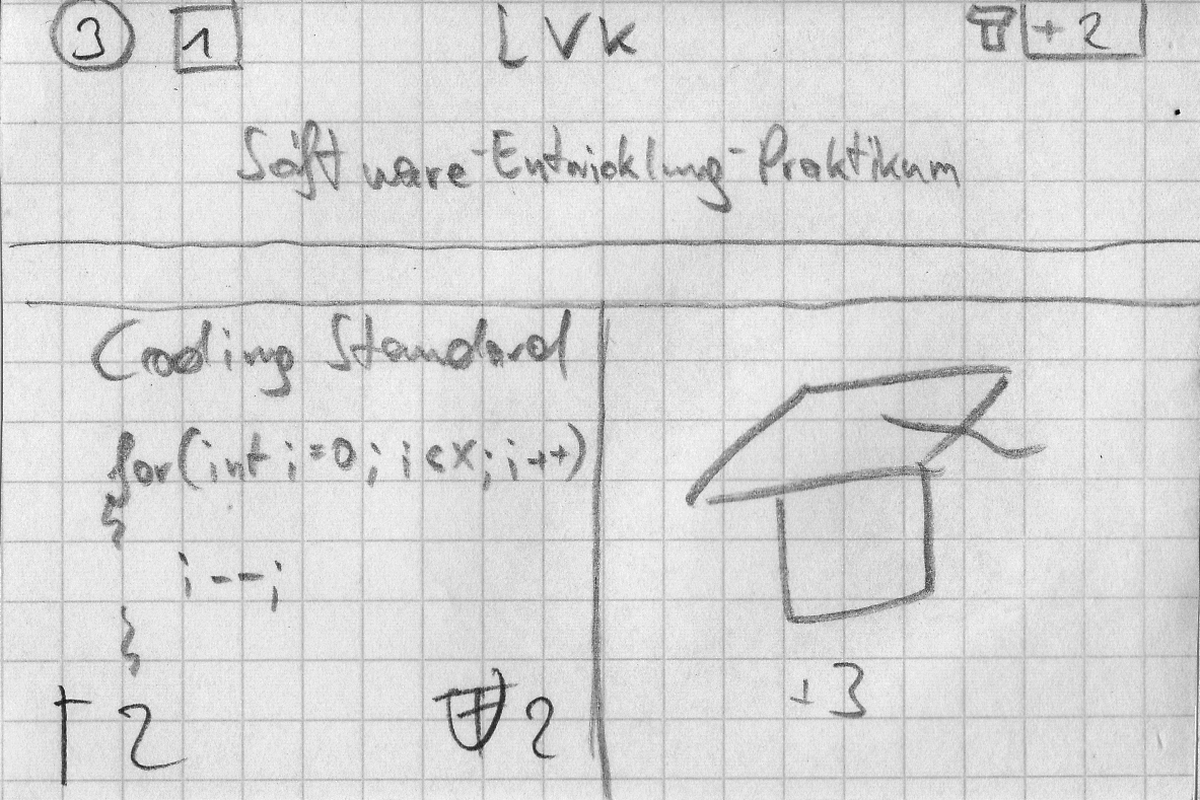 3 1 LVK +2
Software-Entwicklung-Praktikum
Coding Standard
for(int i=0; i<x; i++)
{
i--;
}
2 2
+3